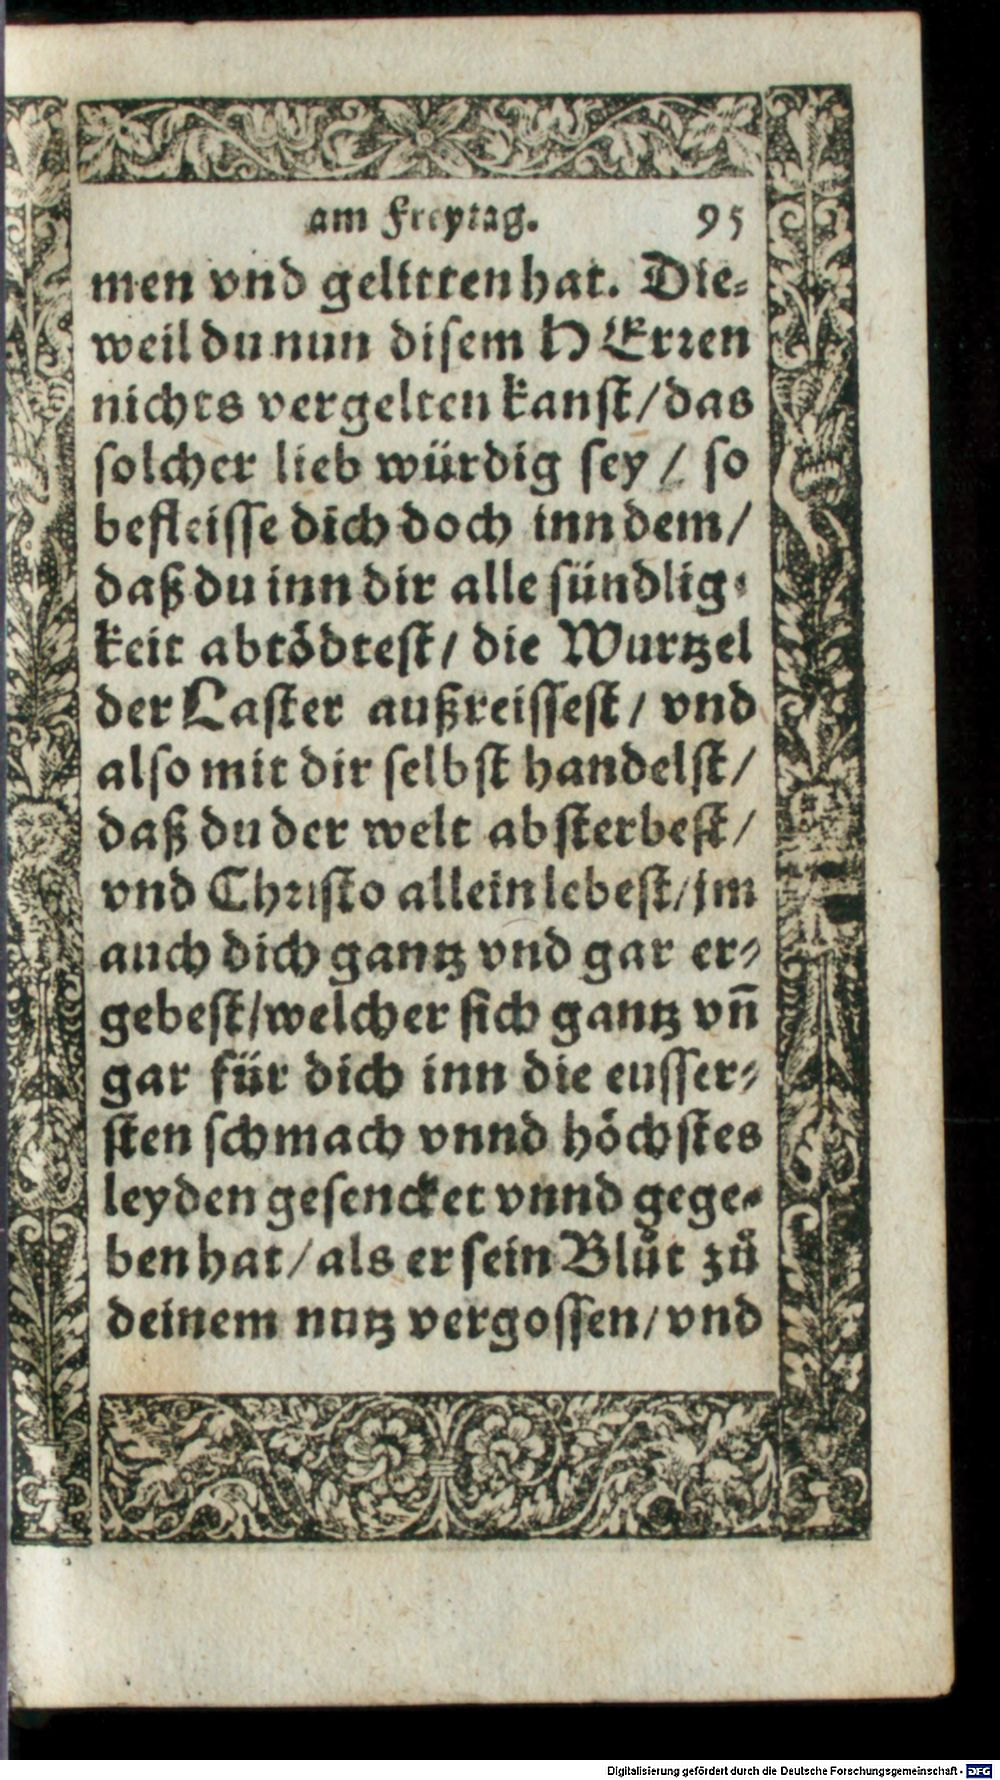 am Freytag. 95
men vnd gelitten hat. Die-
weil du nun disem HErren
nichts vergelten kanst/das
solcher lieb würdig sey / so
befleisse dich doch inn dem/
daß du inn dir alle sündlig-
keit abtödtest/ die Wurtzel
der Laster außreissest/ vnd
also mit dir selbst handelst/
daß du der welt absterbest/
vnd Christo allein lebest/jm
auch dich gantz vnd gar er-
gebest/welcher sich gantz vn̄
gar für dich inn die eusser-
sten schmach vnnd höchstes
leyden gesencket vnnd gege-
ben hat/als er sein Blůt zů
deinem nutz vergossen/vnd
Digitalisierung gefördert durch die Deutsche Forschungsgemeinschaft - DFG